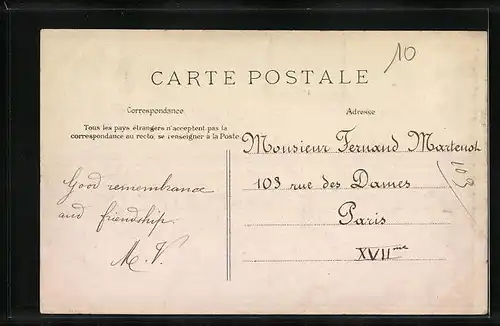 10
CARTE POSTALE
Correspondance
Adresse
Tous les pays étrangers n'acceptent pas la
correspondance au recto, se renseigner à la Poste
Good remembrance
and friendship.
M. V.
Monsieur Fernand Martenot
103 rue des Dames
Paris
XVIIme